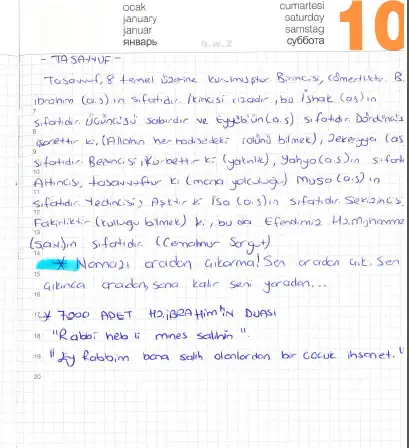 ocak
january
januar
январь
cumartesi
saturday
samstag
суббота
10
h.w.2
- TASAVVUF -
Tasavvuf, 8 temel üzerine kurulmuştur Birincisi, cömertliktir. B.
ibrahim (a.s) ın sıfatıdır. İkincisi rızadır, bu İshak (as)ın
sıfatıdır. Üçüncüsü sabırdır ve Eyyübün (a.s). sıfatıdır. Dördüncüs
işarettir ki, (Allahın her hadisedeki rolünü bilmek), Zekeriyya (as
sıfatıdır. Beşincisi, Kurbettir ki (yakınlık), Yahya (a.s)ın sıfatı
Altıncısı, tasavvuftur ki (mana yolculuğu) Musa (a.s) ın
sıfatıdır. Yedincisi, Aşktır ki İsa (a.s)ın sıfatıdır Sekizincisi
Fakirliktir (kulluğu bilmek) ki, bu da Efendimiz Hz.Muhamme
(sav)in sıfatıdır. (Cemalnur Sargut)
* Namazı aradan çıkarma! Sen aradan çık. Sen
çıkınca aradan, sana kalır seni yaradan...
* 7000 ADET Hz.İBRAHİM'İN DUASI
"Rabbi heb li mines salihin".
"Ey Rabbim bana salih olanlardan bir çocuk ihsan et."
8
9
10
11
12
13
14
15
16
17
18
19
20